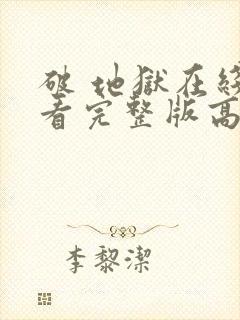 破 地獄在線
看完整版高
李黎潔